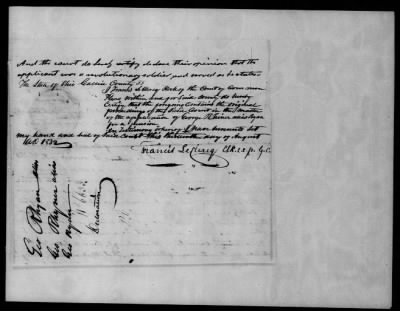 And the court do hereby certify & declare their opinion that the
applicant was a revolutionary soldier and served as he states
The State of Ohio Gallia County
I Francis LeClercq Clerk of the Court of Common
Pleas within and for said County do hereby
Certify that the foregoing contains the original
proceedings of the said Court in the matter
of the application of George
for a pension
In testimony whereof I have hereunto set
my hand and seal of said Court this day of August
A.D. 1832
Francis LeClercq Clk. c.c.p. G.C.
Geo
Geo
Geo
Declaration